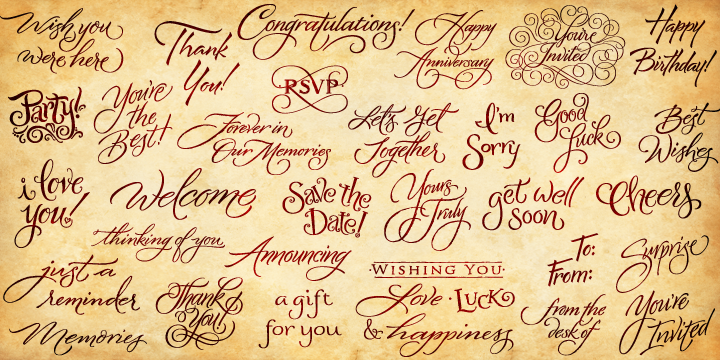 Wish you
were here
Thank
You!
Congratulations!
Happy
Anniversary
You're
Invited
Happy
Birthday!
Party!
You're
the
Best!
RSVP
Forever in
Our Memories
Let's Get
Together
I'm
Sorry
Good
Luck
Best
Wishes
i love
you!
Welcome
Save the
Date!
Yours
Truly
get well
soon
Cheers
thinking of you
Announcing
WISHING YOU
Love · Luck
& happiness
To:
From:
Surprise
just a
reminder
Memories
Thank
You!
a gift
for you
from the
desk of
You're
Invited